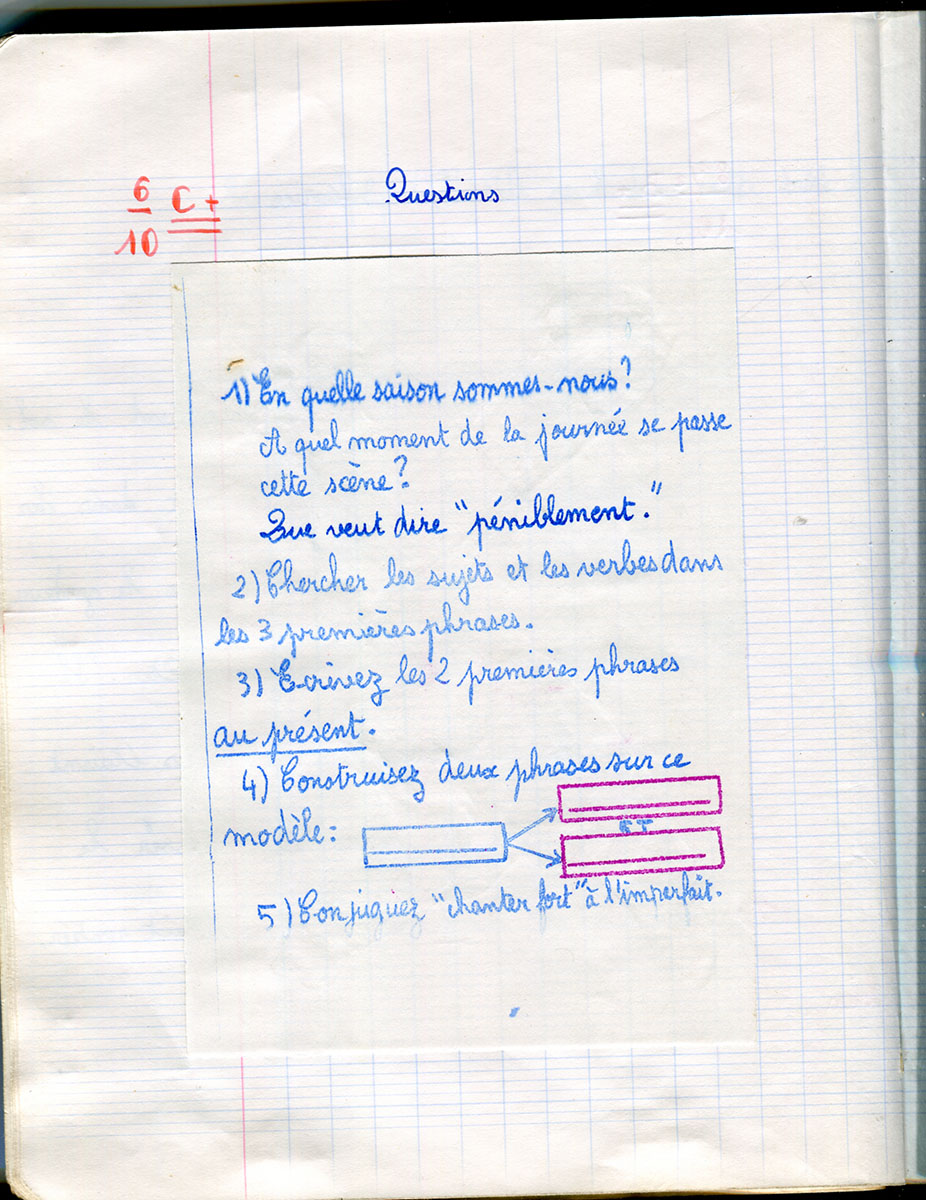 Questions
6
10
C+
1) En quelle saison sommes-nous?
A quel moment de la journée se passe
cette scène?
Que veut dire "péniblement."
2) Chercher les sujets et les verbes dans
les 3 premières phrases.
3) Ecrivez les 2 premières phrases
au présent.
4) Construisez deux phrases sur ce
modèle:
ET
5) Conjuguez "chanter fort" à l'imperfait.